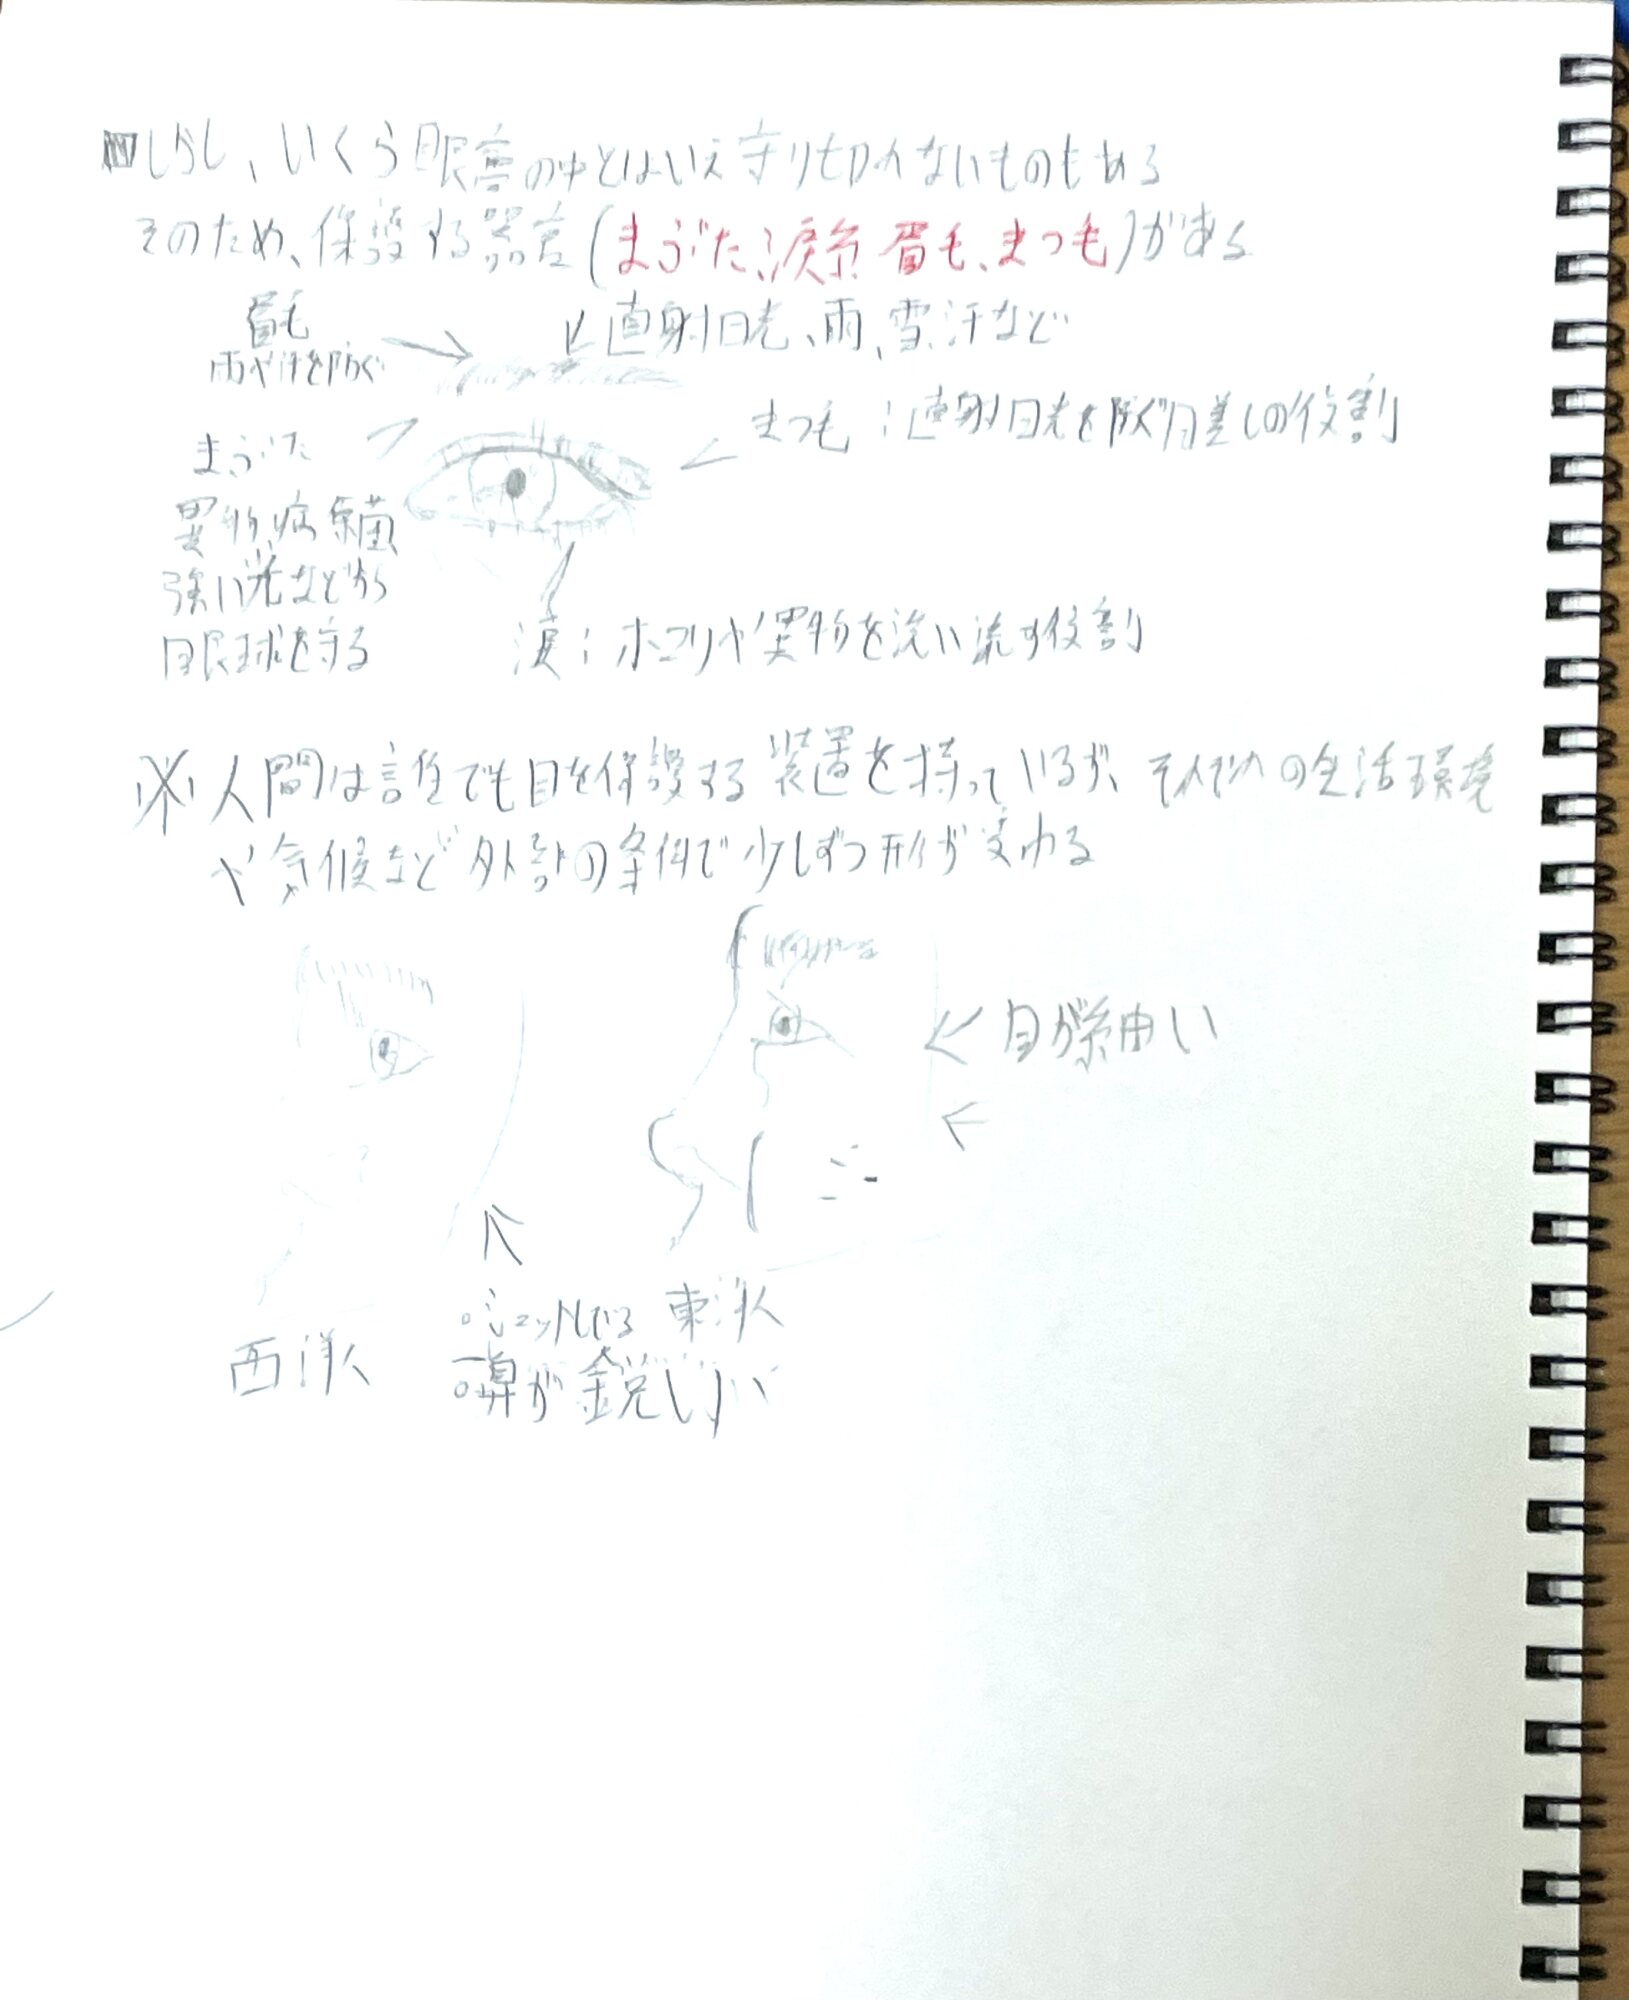 しかし、いくら眼窩の中とはいえ守り切れないものもある
そのため、保護する器官(まぶた、涙、眉毛、まつ毛)がある
眉毛
雨や汗を防ぐ
直射日光、雨、雪、汗など
まつ毛:直射日光を防ぐ日差しの役割
まぶた
異物、病原菌
強い光などから
眼球を守る
涙:ホコリや異物を洗い流す役割
※人間は誰でも目を保護する装置を持っているが、それぞれの生活環境
や気候など外部の条件で少しずつ形が変わる
目が細い
東洋人
西洋人
鼻が鋭い